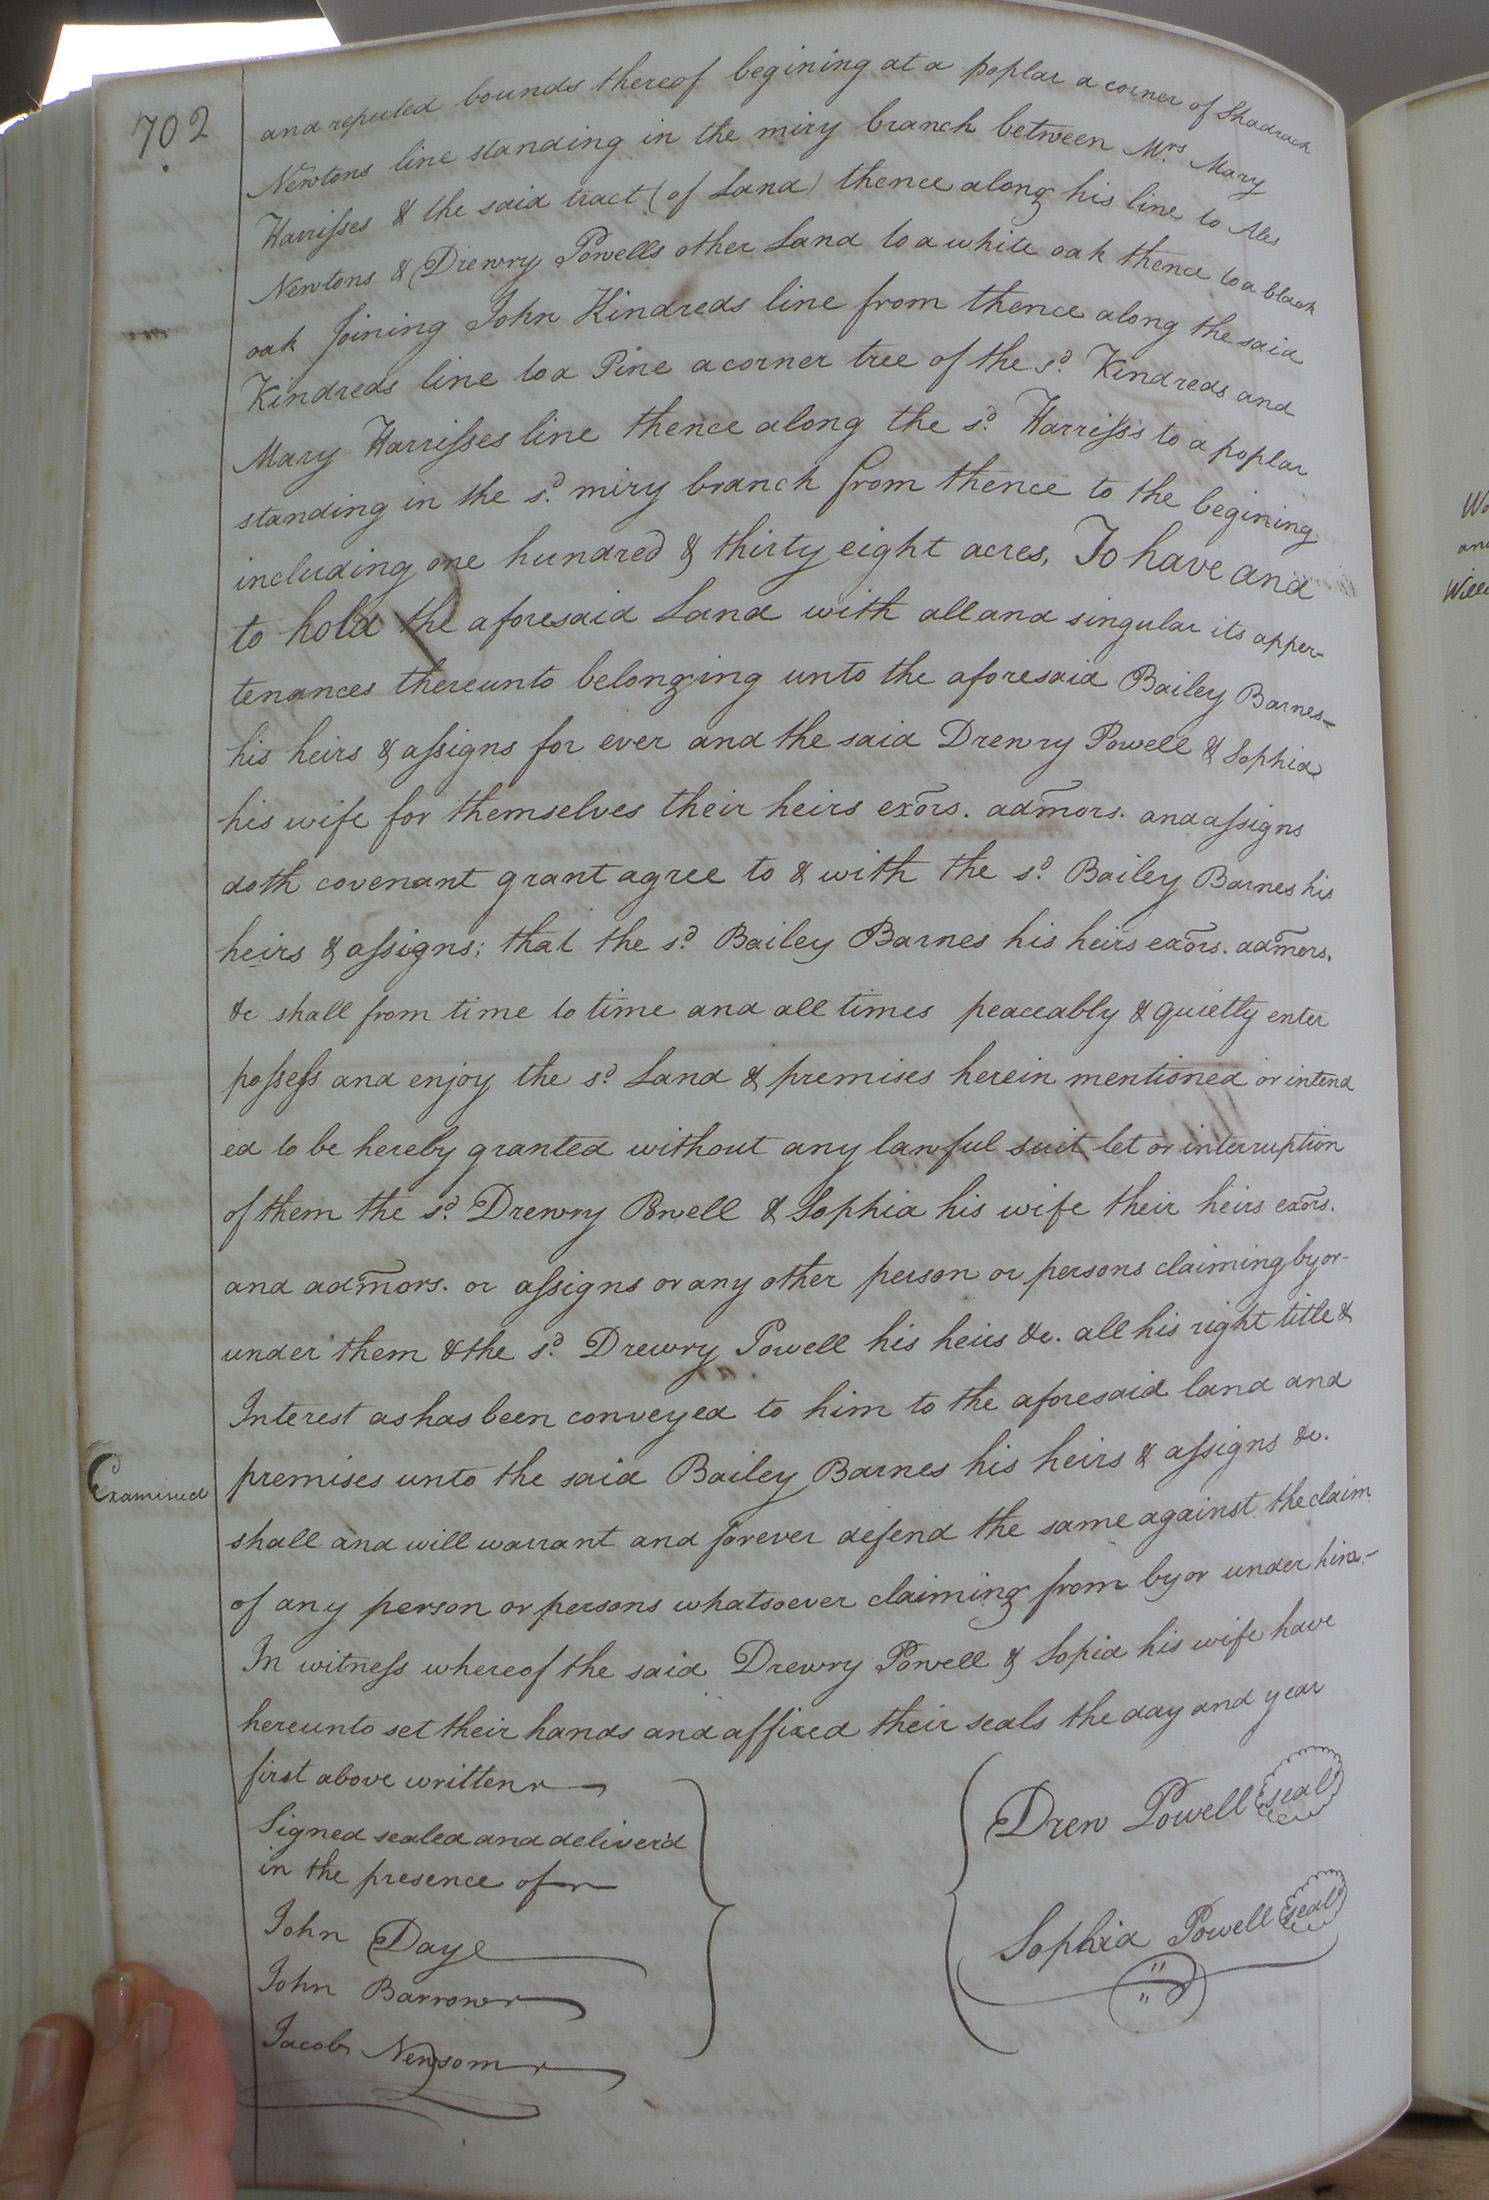 702
and reputed bounds thereof begining at a poplar a corner of Shadrach
Newtons line standing in the miry branch between Mrs. Mary
Harrisses & the said tract (of Land) thence along his line to
Newtons & Drewry Powells other Land to a white oak thence to a black
oak Joining John Kindreds line from thence along the said
Kindreds line to a Pine a corner tree of the sd. Kindreds and
Mary Harrisses line thence along the sd. Harriss's to a poplar
standing in the sd. miry branch from thence to the begining
including one hundred & thirty eight acres, To have and
to hold the aforesaid Land with all and singular its apper-
tenances thereunto belonging unto the aforesaid Bailey Barnes-
his heirs & assigns for ever and the said Drewry Powell & Sophia
his wife for themselves their heirs exors. admors. and assigns
doth covenant grant agree to & with the sd. Bailey Barnes his
heirs & assigns; that the sd. Bailey Barnes his heirs exors. admors.
&c shall from time to time and all times peaceably & quietly enter
possess and enjoy the sd. Land & premises herein mentioned or intend
ed to be hereby granted without any lawful suit let or interruption
of them the sd. Drewry Powell & Sophia his wife their heirs exors.
and admors. or assigns or any other person or persons claiming by or-
under them & the sd. Drewry Powell his heirs &c. all his right title &
Interest as has been conveyed to him to the aforesaid land and
Examined
premises unto the said Bailey Barnes his heirs & assigns &c.
shall and will warrant and forever defend the same against the claim
of any person or persons whatsoever claiming from by or under him-
In witness whereof the said Drewry Powell & Sopia his wife have
hereunto set their hands and affixed their seals the day and year
first above written
Signed sealed and deliver'd
in the presence of
John Daye
John Barrow
Jacob Newsom
Drew Powell seal
Sophia Powell seal